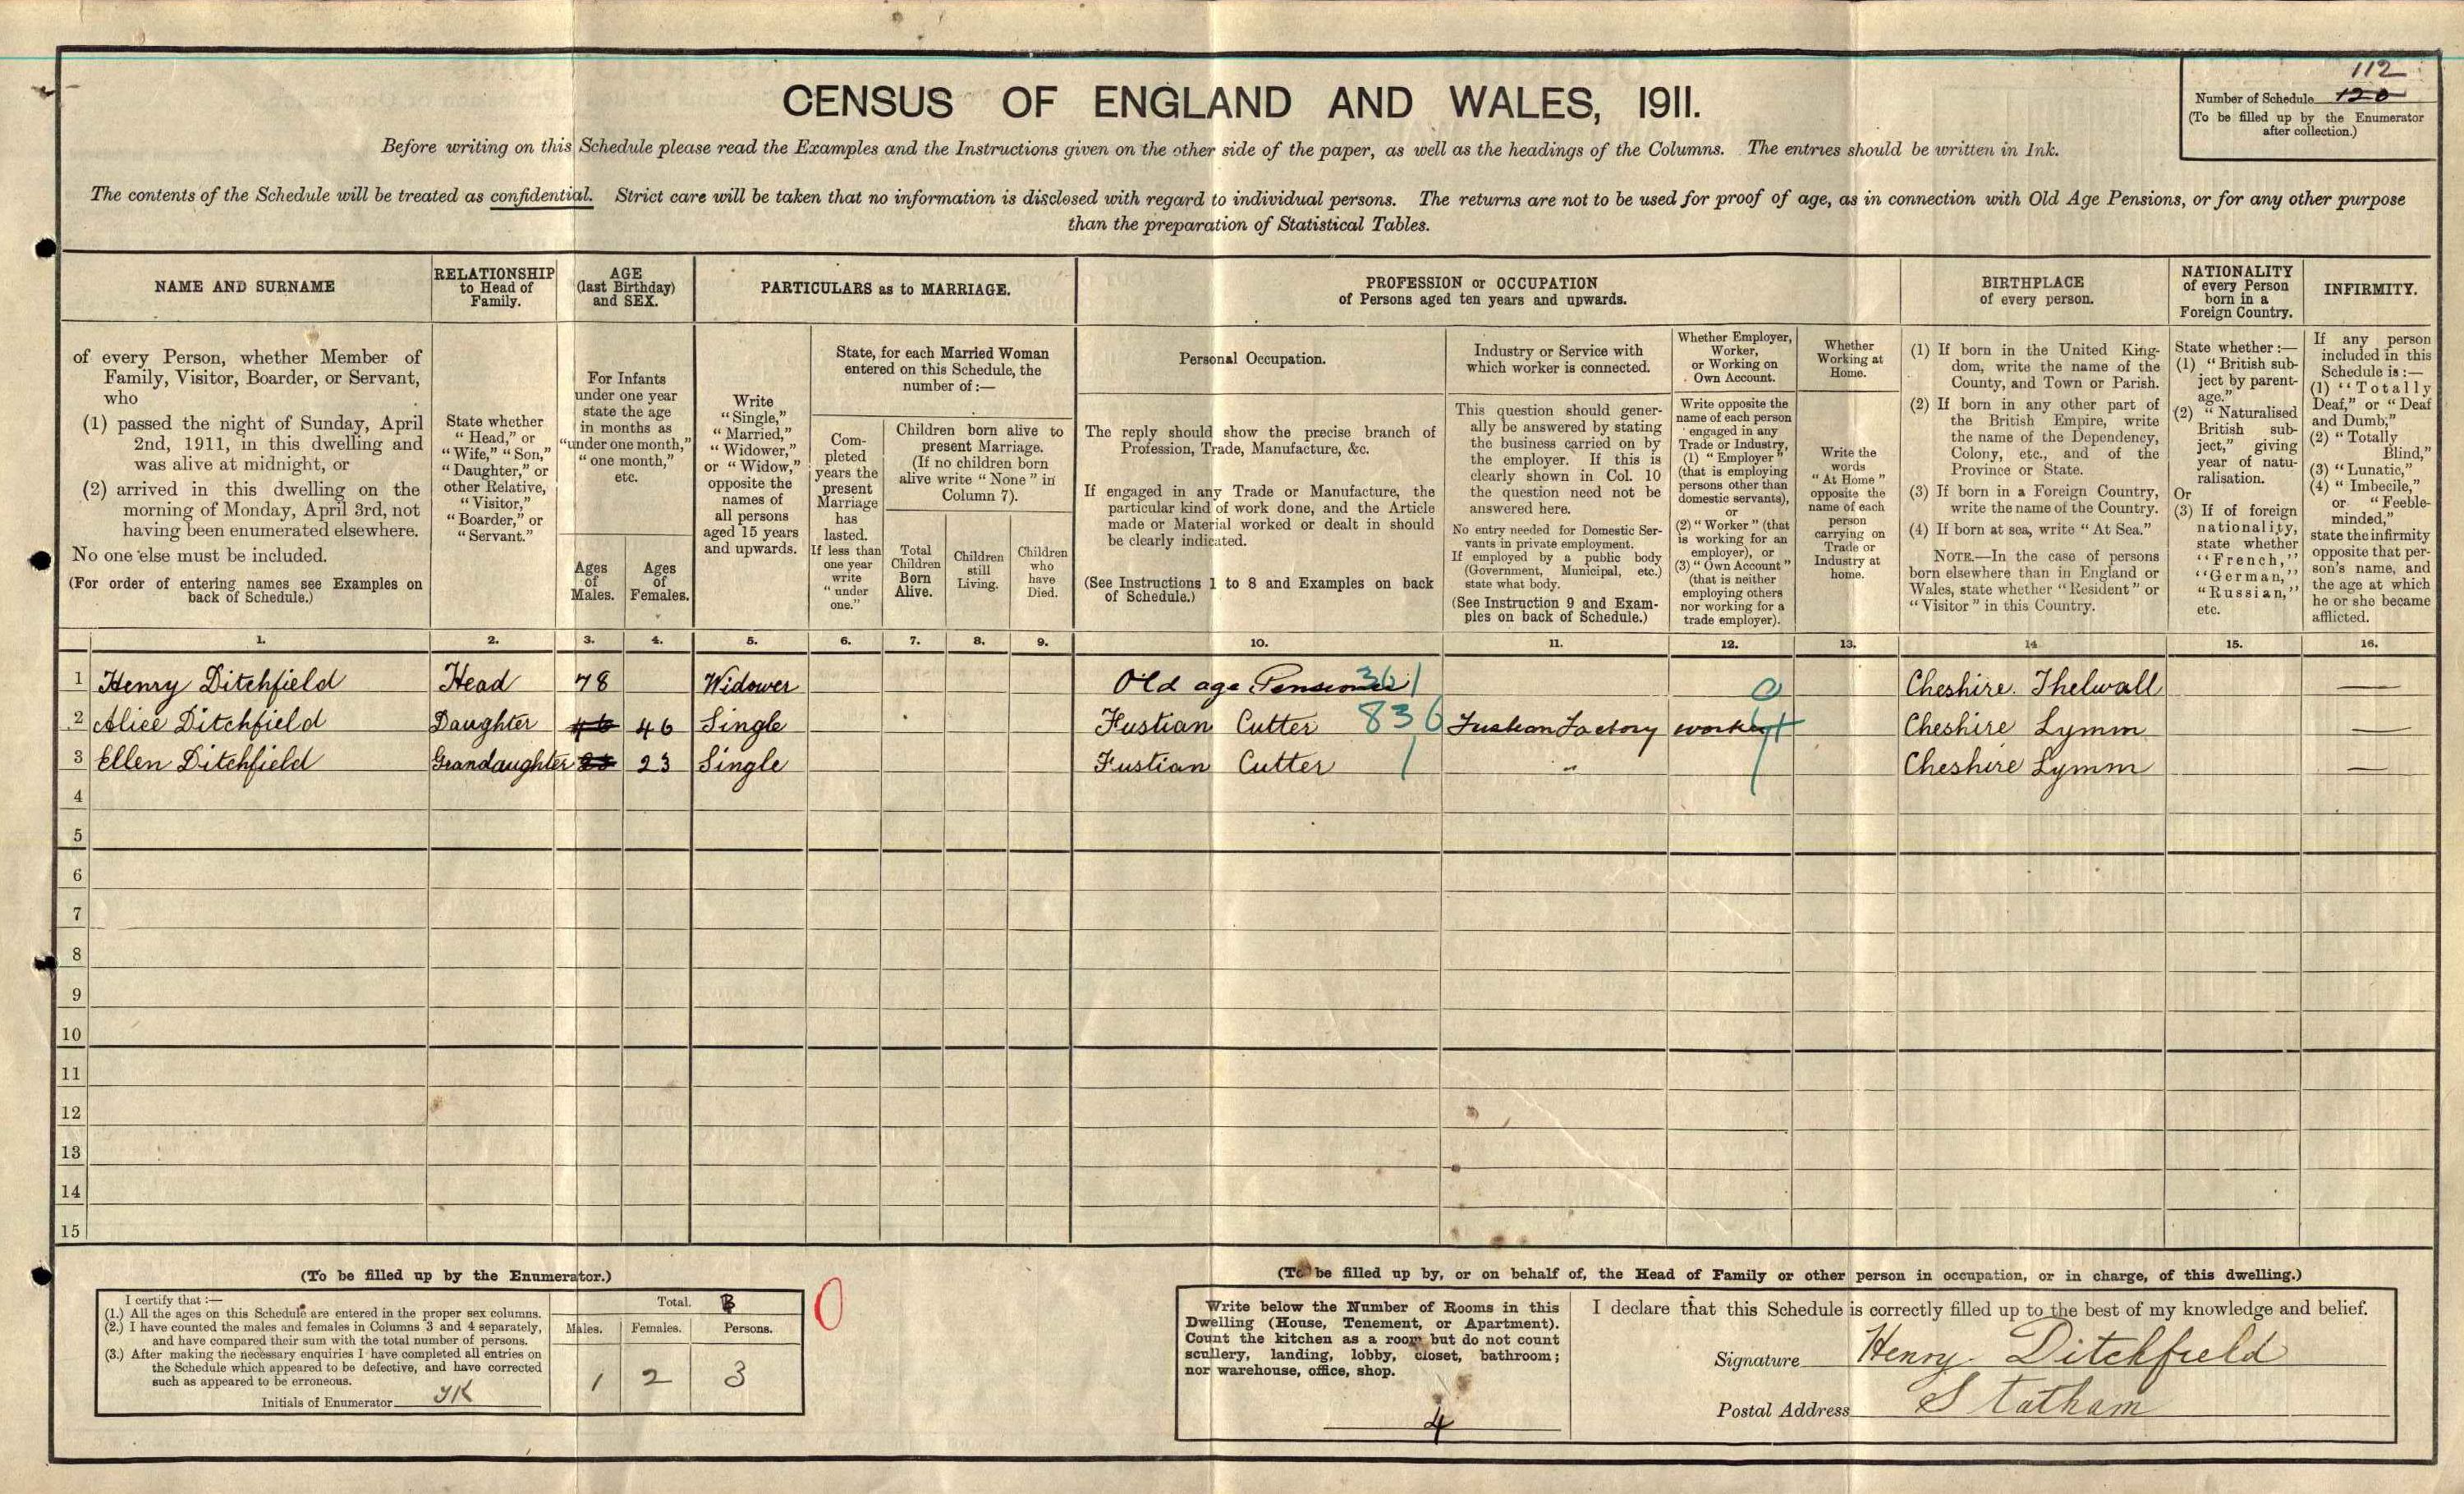 CENSUS OF ENGLAND AND WALES, 1911.
112
Number of Schedule 120
(To be filled up by the Enumerator
after collection.)
Before writing on this Schedule please read the Examples and the Instructions given on the other side of the paper, as well as the headings of the Columns. The entries should be written in Ink.
The contents of the Schedule will be treated as confidential. Strict care will be taken that no information is disclosed with regard to individual persons. The returns are not to be used for proof of age, as in connection with Old Age Pensions, or for any other purpose
than the preparation of Statistical Tables.
NAME AND SURNAME
of every Person, whether Member of
Family, Visitor, Boarder, or Servant,
who
(1) passed the night of Sunday, April
2nd, 1911, in this dwelling and
was alive at midnight, or
(2) arrived in this dwelling on the
morning of Monday, April 3rd, not
having been enumerated elsewhere.
No one else must be included.
(For order of entering names see Examples on
back of Schedule.)
RELATIONSHIP
to Head of
Family.
State whether
"Head," or
"Wife," "Son,"
"Daughter," or
other Relative,
"Visitor,"
"Boarder," or
"Servant."
AGE
(last Birthday)
and SEX.
For Infants
under one year
state the age
in months as
"under one month,"
"one month,"
etc.
Ages
of
Males.
Ages
of
Females.
PARTICULARS as to MARRIAGE.
Write
"Single,"
"Married,"
"Widower,"
or "Widow,"
opposite the
names of
all persons
aged 15 years
and upwards.
State, for each Married Woman
entered on this Schedule, the
number of:—
Com-
pleted
years the
present
Marriage
has
lasted.
If less than
one year
write
"under
one."
Children born alive to
present Marriage.
(If no children born
alive write "None" in
Column 7).
Total
Children
Born
Alive.
Children
still
Living.
Children
who
have
Died.
PROFESSION or OCCUPATION
of Persons aged ten years and upwards.
Personal Occupation.
The reply should show the precise branch of
Profession, Trade, Manufacture, &c.
If engaged in any Trade or Manufacture, the
particular kind of work done, and the Article
made or Material worked or dealt in should
be clearly indicated.
(See Instructions 1 to 8 and Examples on back
of Schedule.)
Industry or Service with
which worker is connected.
This question should gener-
ally be answered by stating
the business carried on by
the employer. If this is
clearly shown in Col. 10
the question need not be
answered here.
No entry needed for Domestic Ser-
vants in private employment.
If employed by a public body
(Government, Municipal, etc.)
state what body.
(See Instruction 9 and Exam-
ples on back of Schedule.)
Whether Employer,
Worker,
or Working on
Own Account.
Write opposite the
name of each person
engaged in any
Trade or Industry,
(1) "Employer"
(that is employing
persons other than
domestic servants),
or
(2) "Worker" (that
is working for an
employer), or
(3) "Own Account"
(that is neither
employing others
nor working for a
trade employer).
Whether
Working at
Home.
Write the
words
"At Home"
opposite the
name of each
person
carrying on
Trade or
Industry at
home.
BIRTHPLACE
of every person.
(1) If born in the United King-
dom, write the name of the
County, and Town or Parish.
(2) If born in any other part of
the British Empire, write
the name of the Dependency,
Colony, etc., and of the
Province or State.
(3) If born in a Foreign Country,
write the name of the Country.
(4) If born at sea, write "At Sea."
NOTE.—In the case of persons
born elsewhere than in England or
Wales, state whether "Resident" or
"Visitor" in this Country.
NATIONALITY
of every Person
born in a
Foreign Country.
State whether:—
(1) "British sub-
ject by parent-
age."
(2) "Naturalised
British sub-
ject," giving
year of natu-
ralisation.
Or
(3) If of foreign
nationality,
state whether
"French,"
"German,"
"Russian,"
etc.
INFIRMITY.
If any person
included in this
Schedule is:—
(1) "Totally
Deaf," or "Deaf
and Dumb,"
(2) "Totally
Blind,"
(3) "Lunatic,"
(4) "Imbecile,"
or "Feeble-
minded,"
state the infirmity
opposite that per-
son's name, and
the age at which
he or she became
afflicted.
1. 2. 3. 4. 5. 6. 7. 8. 9. 10. 11. 12. 13. 14 15. 16.
1 Henry Ditchfield Head 78 Widower Old age Pensioner 361 0 Cheshire. Thelwall —
2 Alice Ditchfield Daughter 46 46 Single Fustian Cutter 836 Fustian Factory worker Cheshire Lymm —
3 Ellen Ditchfield Grandaughter 23 23 Single Fustian Cutter " Cheshire Lymm —
4
5
6
7
8
9
10
11
12
13
14
15
(To be filled up by the Enumerator.)
I certify that:—
(1.) All the ages on this Schedule are entered in the proper sex columns.
(2.) I have counted the males and females in Columns 3 and 4 separately,
and have compared their sum with the total number of persons.
(3.) After making the necessary enquiries I have completed all entries on
the Schedule which appeared to be defective, and have corrected
such as appeared to be erroneous.
Initials of Enumerator
Total.
Males. Females. Persons.
1 2 3
0
(To be filled up by, or on behalf of, the Head of Family or other person in occupation, or in charge, of this dwelling.)
Write below the Number of Rooms in this
Dwelling (House, Tenement, or Apartment).
Count the kitchen as a room but do not count
scullery, landing, lobby, closet, bathroom;
nor warehouse, office, shop.
4
I declare that this Schedule is correctly filled up to the best of my knowledge and belief.
Signature Henry Ditchfield
Postal Address Statham